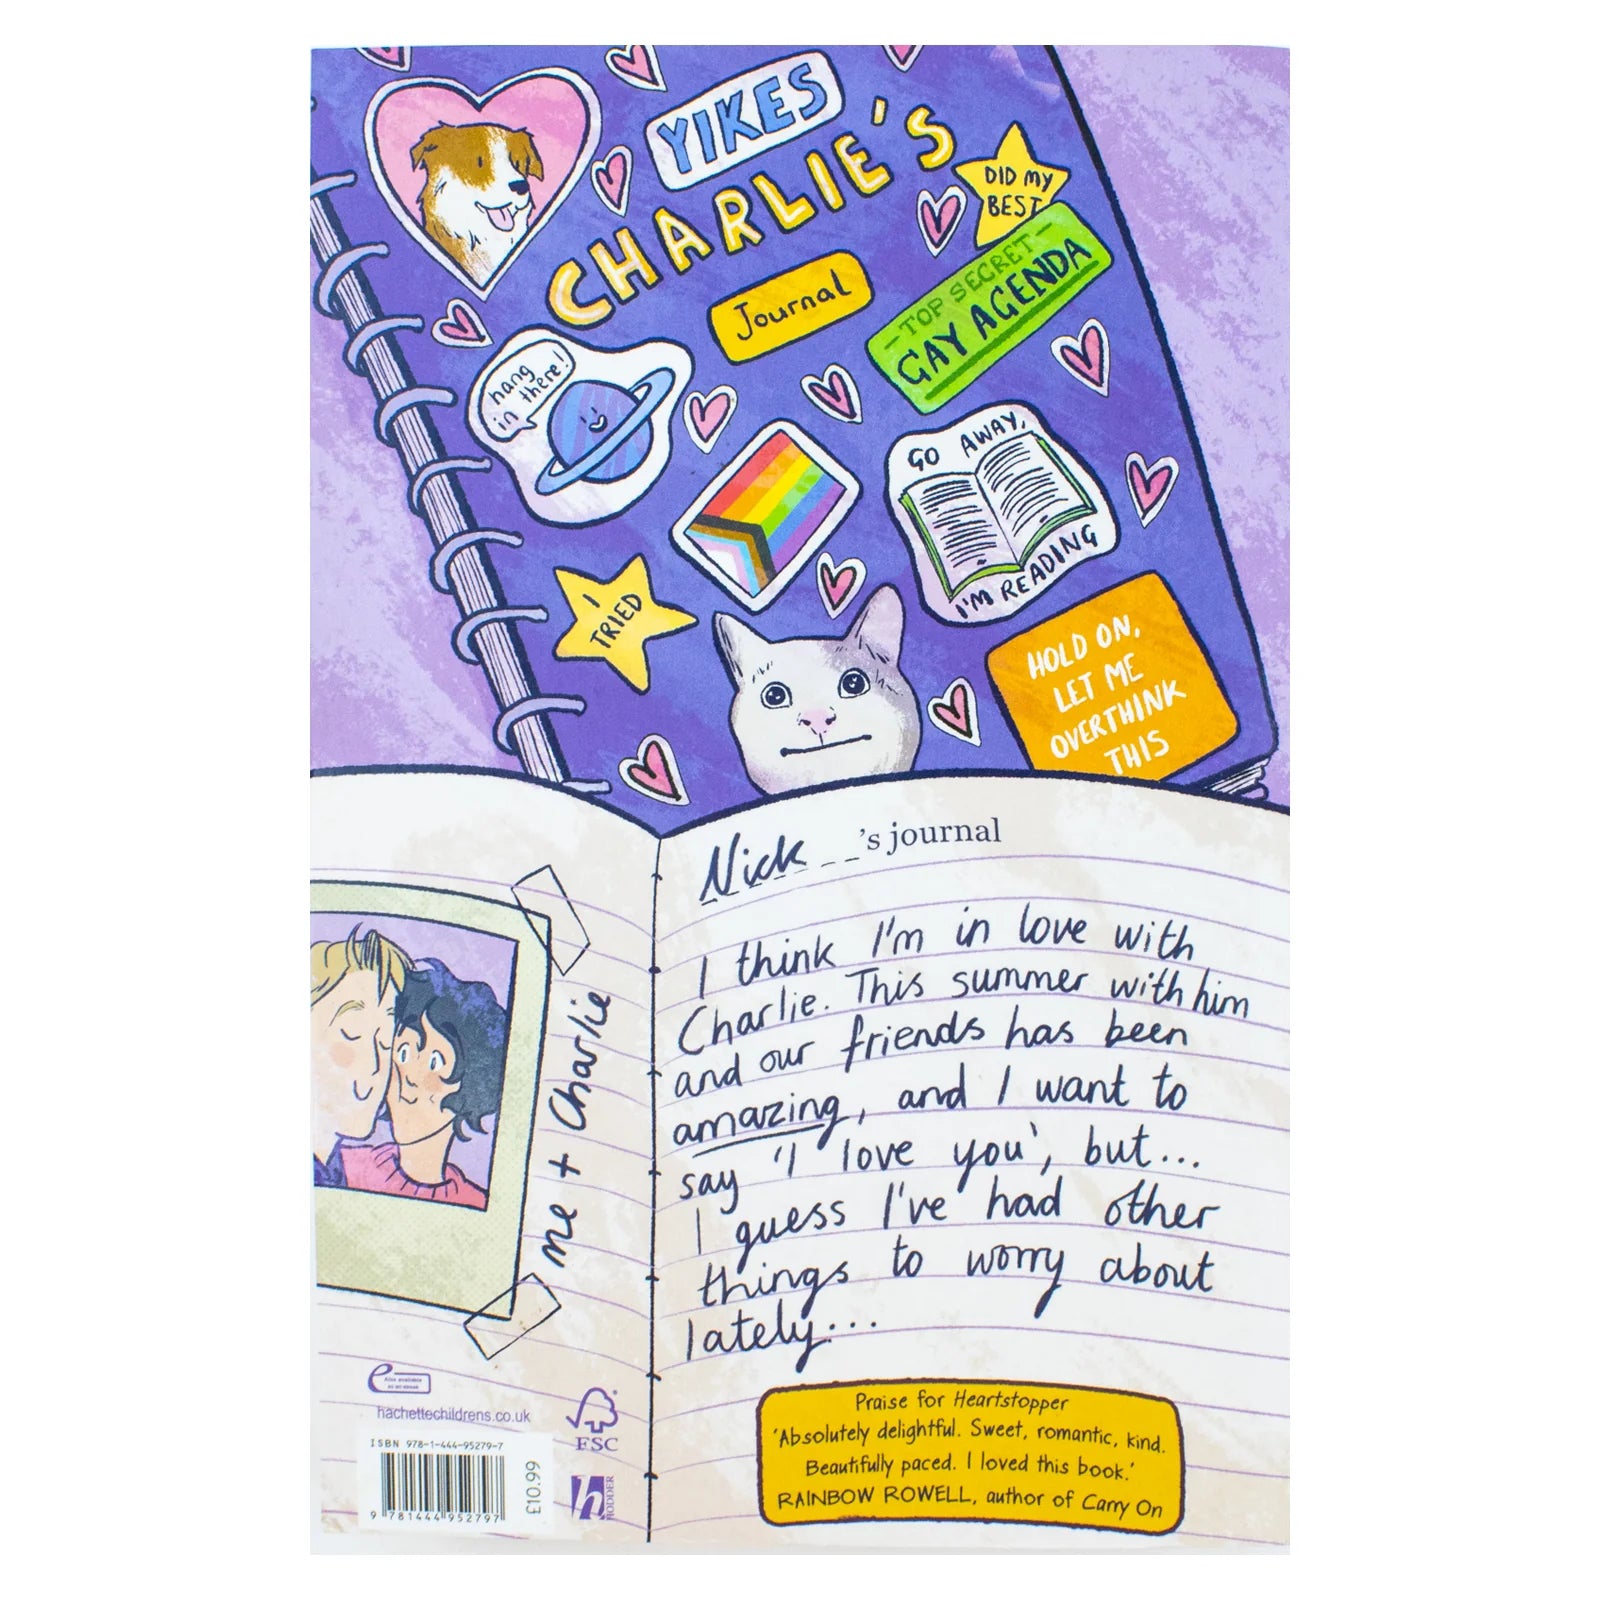 YIKES
CHARLIE'S
Journal
DID MY
BEST
-TOP SECRET-
GAY AGENDA
hang
in there!
GO AWAY,
I'M READING
I
TRIED
HOLD ON,
LET ME
OVERTHINK
THIS
Nick's journal
I think I'm in love with
Charlie. This summer with him
and our friends has been
amazing, and I want to
say 'I love you', but...
I guess I've had other
things to worry about
lately...
me + Charlie
Also available
as an ebook
hachettechildrens.co.uk
FSC
ISBN 978-1-444-95279-7
9 781444 952797
£10.99
h
HODDER
Praise for Heartstopper
'Absolutely delightful. Sweet, romantic, kind.
Beautifully paced. I loved this book.'
RAINBOW ROWELL, author of Carry On